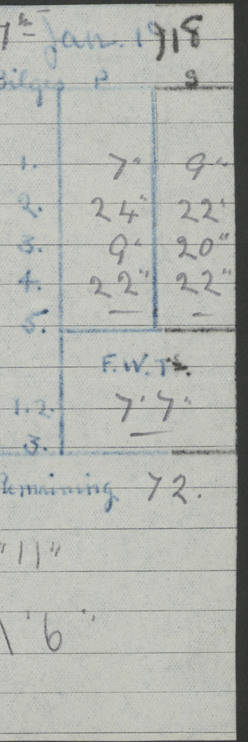 7th Jan. 1918
Bilges P S
1. 7" 9"
2. 24" 22"
3. 9" 20"
4. 22" 22"
5. — —
F.W.Ts.
1.2. 7'7"
3. —
Remaining 72.
"11"
'6"